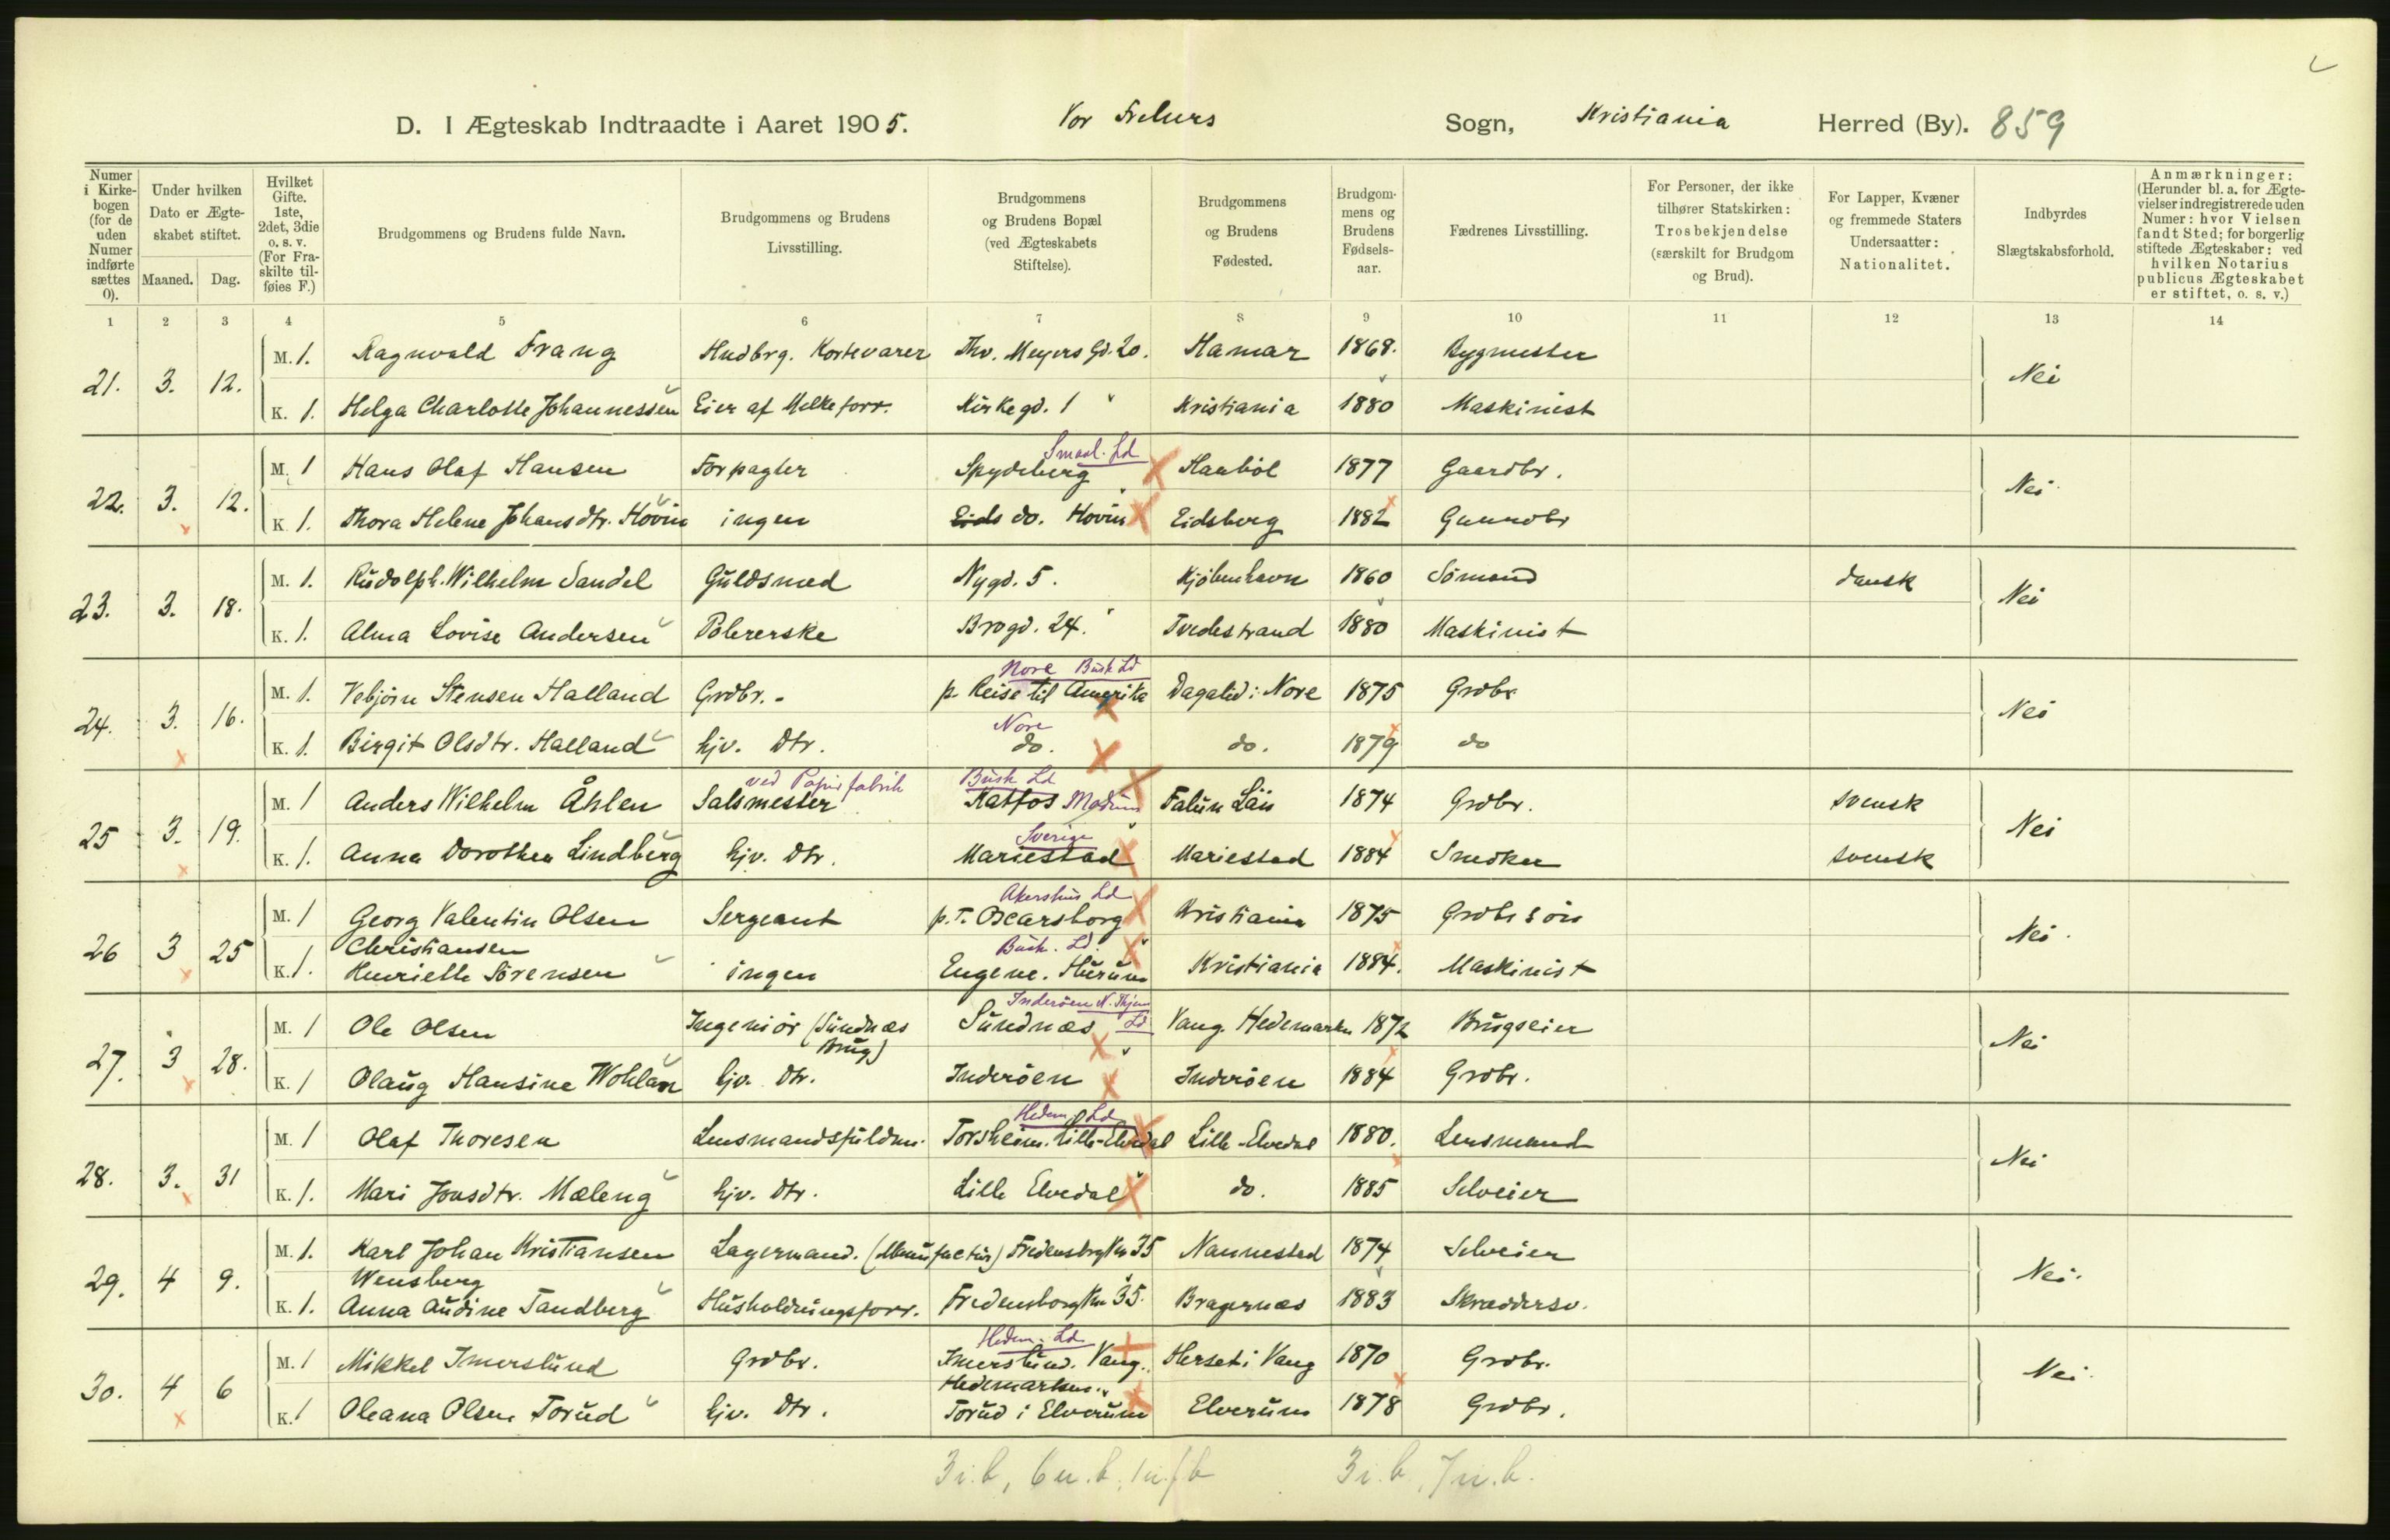 D. I Ægteskab Indtraadte i Aaret 1905. Vor Frelsers Sogn, Kristiania Herred (By). 859
Numer i Kirkebogen (for de uden Numer indførte sættes 0).
Under hvilken Dato er Ægteskabet stiftet.
Maaned. Dag.
Hvilket Gifte. 1ste, 2det, 3die o. s. v. (For Fraskilte tilføies F.)
Brudgommens og Brudens fulde Navn.
Brudgommens og Brudens Livsstilling.
Brudgommens og Brudens Bopæl (ved Ægteskabets Stiftelse).
Brudgommens og Brudens Fødested.
Brudgommens og Brudens Fødselsaar.
Fædrenes Livsstilling.
For Personer, der ikke tilhører Statskirken: Trosbekjendelse (særskilt for Brudgom og Brud).
For Lapper, Kvæner og fremmede Staters Undersaatter: Nationalitet.
Indbyrdes Slægtskabsforhold.
Anmærkninger: (Herunder bl. a. for Ægtevielser indregistrerede uden Numer: hvor Vielsen fandt Sted; for borgerlig stiftede Ægteskaber: ved hvilken Notarius publicus Ægteskabet er stiftet, o. s. v.)
1 2 3 4 5 6 7 8 9 10 11 12 13 14
21. 3. 12. M. 1. Ragnvald Frang Hndbrg. Kortevarer Thv. Meyers Gd. 20. Hamar 1868. Bygmester Nei
K. 1. Helga Charlotte Johannessen Eier af Melkeforr. Kirkegd. 1 Kristiania 1880 Maskinist
Smaal. Ld
22. 3. 12. M. 1 Hans Olaf Hansen Forpagter Spydeberg Haabøl 1877 Gaardbr. Nei
K 1. Thora Helene Johansdtr. Hovin ingen Eids do. Hovin Eidsberg 1882 Gaardbr
23. 3. 18. M. 1. Rudolph Wilhelm Sandel Guldsmed Nygd. 5. Kjøbenhavn 1860 Sømand dansk Nei
K. 1. Alma Lovise Andersen Polererske Brogd. 24. Tvedestrand 1880 Maskinist
Nore Busk Ld
24. 3. 16. M. 1. Vebjørn Stensen Halland Grdbr. p. Reise til Amerika Dagalid i Nore 1875 Grdbr Nei
Nore
K. 1. Birgit Olsdtr. Halland hjv. Dtr. do. do. 1879 do
ved Papirfabrik Busk Ld
25 3. 19. M. 1 Anders Wilhelm Åhlen Salsmester Katfos Modum Falun Län 1874 Grdbr. svensk Nei
Sverige
K. 1. Anna Dorothea Lindberg hjv. Dtr. Mariestad Mariestad 1884 Snedker svensk
Akershus Ld
26 3 25 M. 1 Georg Valentin Olsen Sergeant p. T. Oscarsborg Kristiania 1875 Nei
Christiansen Busk. Ld.
K. 1. Henriette Sørensen ingen Engene. Hurum Kristiania 1884. Maskinist
Inderøen N. Thjem Ld
27. 3 28. M. 1 Ole Olsen Ingeniør (Sundnæs Brug) Sundnæs Vang. Hedemarken 1872 Brugseier Nei
K. 1 Olaug Hansine Wohlan hjv. Dtr. Inderøen Inderøen 1884 Grdbr.
Hedem. Ld
28. 3. 31 M. 1 Olaf Thoresen Lensmandsfuldm. Torsheim. Lille-Elvedal Lille-Elvedal 1880. Lensmand Nei
K. 1. Mari Jonsdtr. Mæleng hjv. Dtr. Lille Elvedal do. 1885 Selveier
29. 4 9. M. 1. Karl Johan Kristiansen Lagermand. (Manufactur) Fredensborgvn 35 Nannestad 1874 Selveier Nei.
Wensberg
K. 1. Anna Audine Tandberg Husholdningsforr. Fredensborgvn 35. Bragernæs 1883 Skræddersv.
Hedem. Ld
30. 4 6 M. 1 Mikkel Imerslund Grdbr. Imerslund. Vang. Herset i Vang 1870 Grdbr. Nei.
Hedemarken.
K. 1 Oleana Olsen Torud hjv. Dtr. Torud i Elverum Elverum 1878 Grdbr.
3 i. b, 6 u. b, 1 u. f b 3 i. b, 7 u. b.